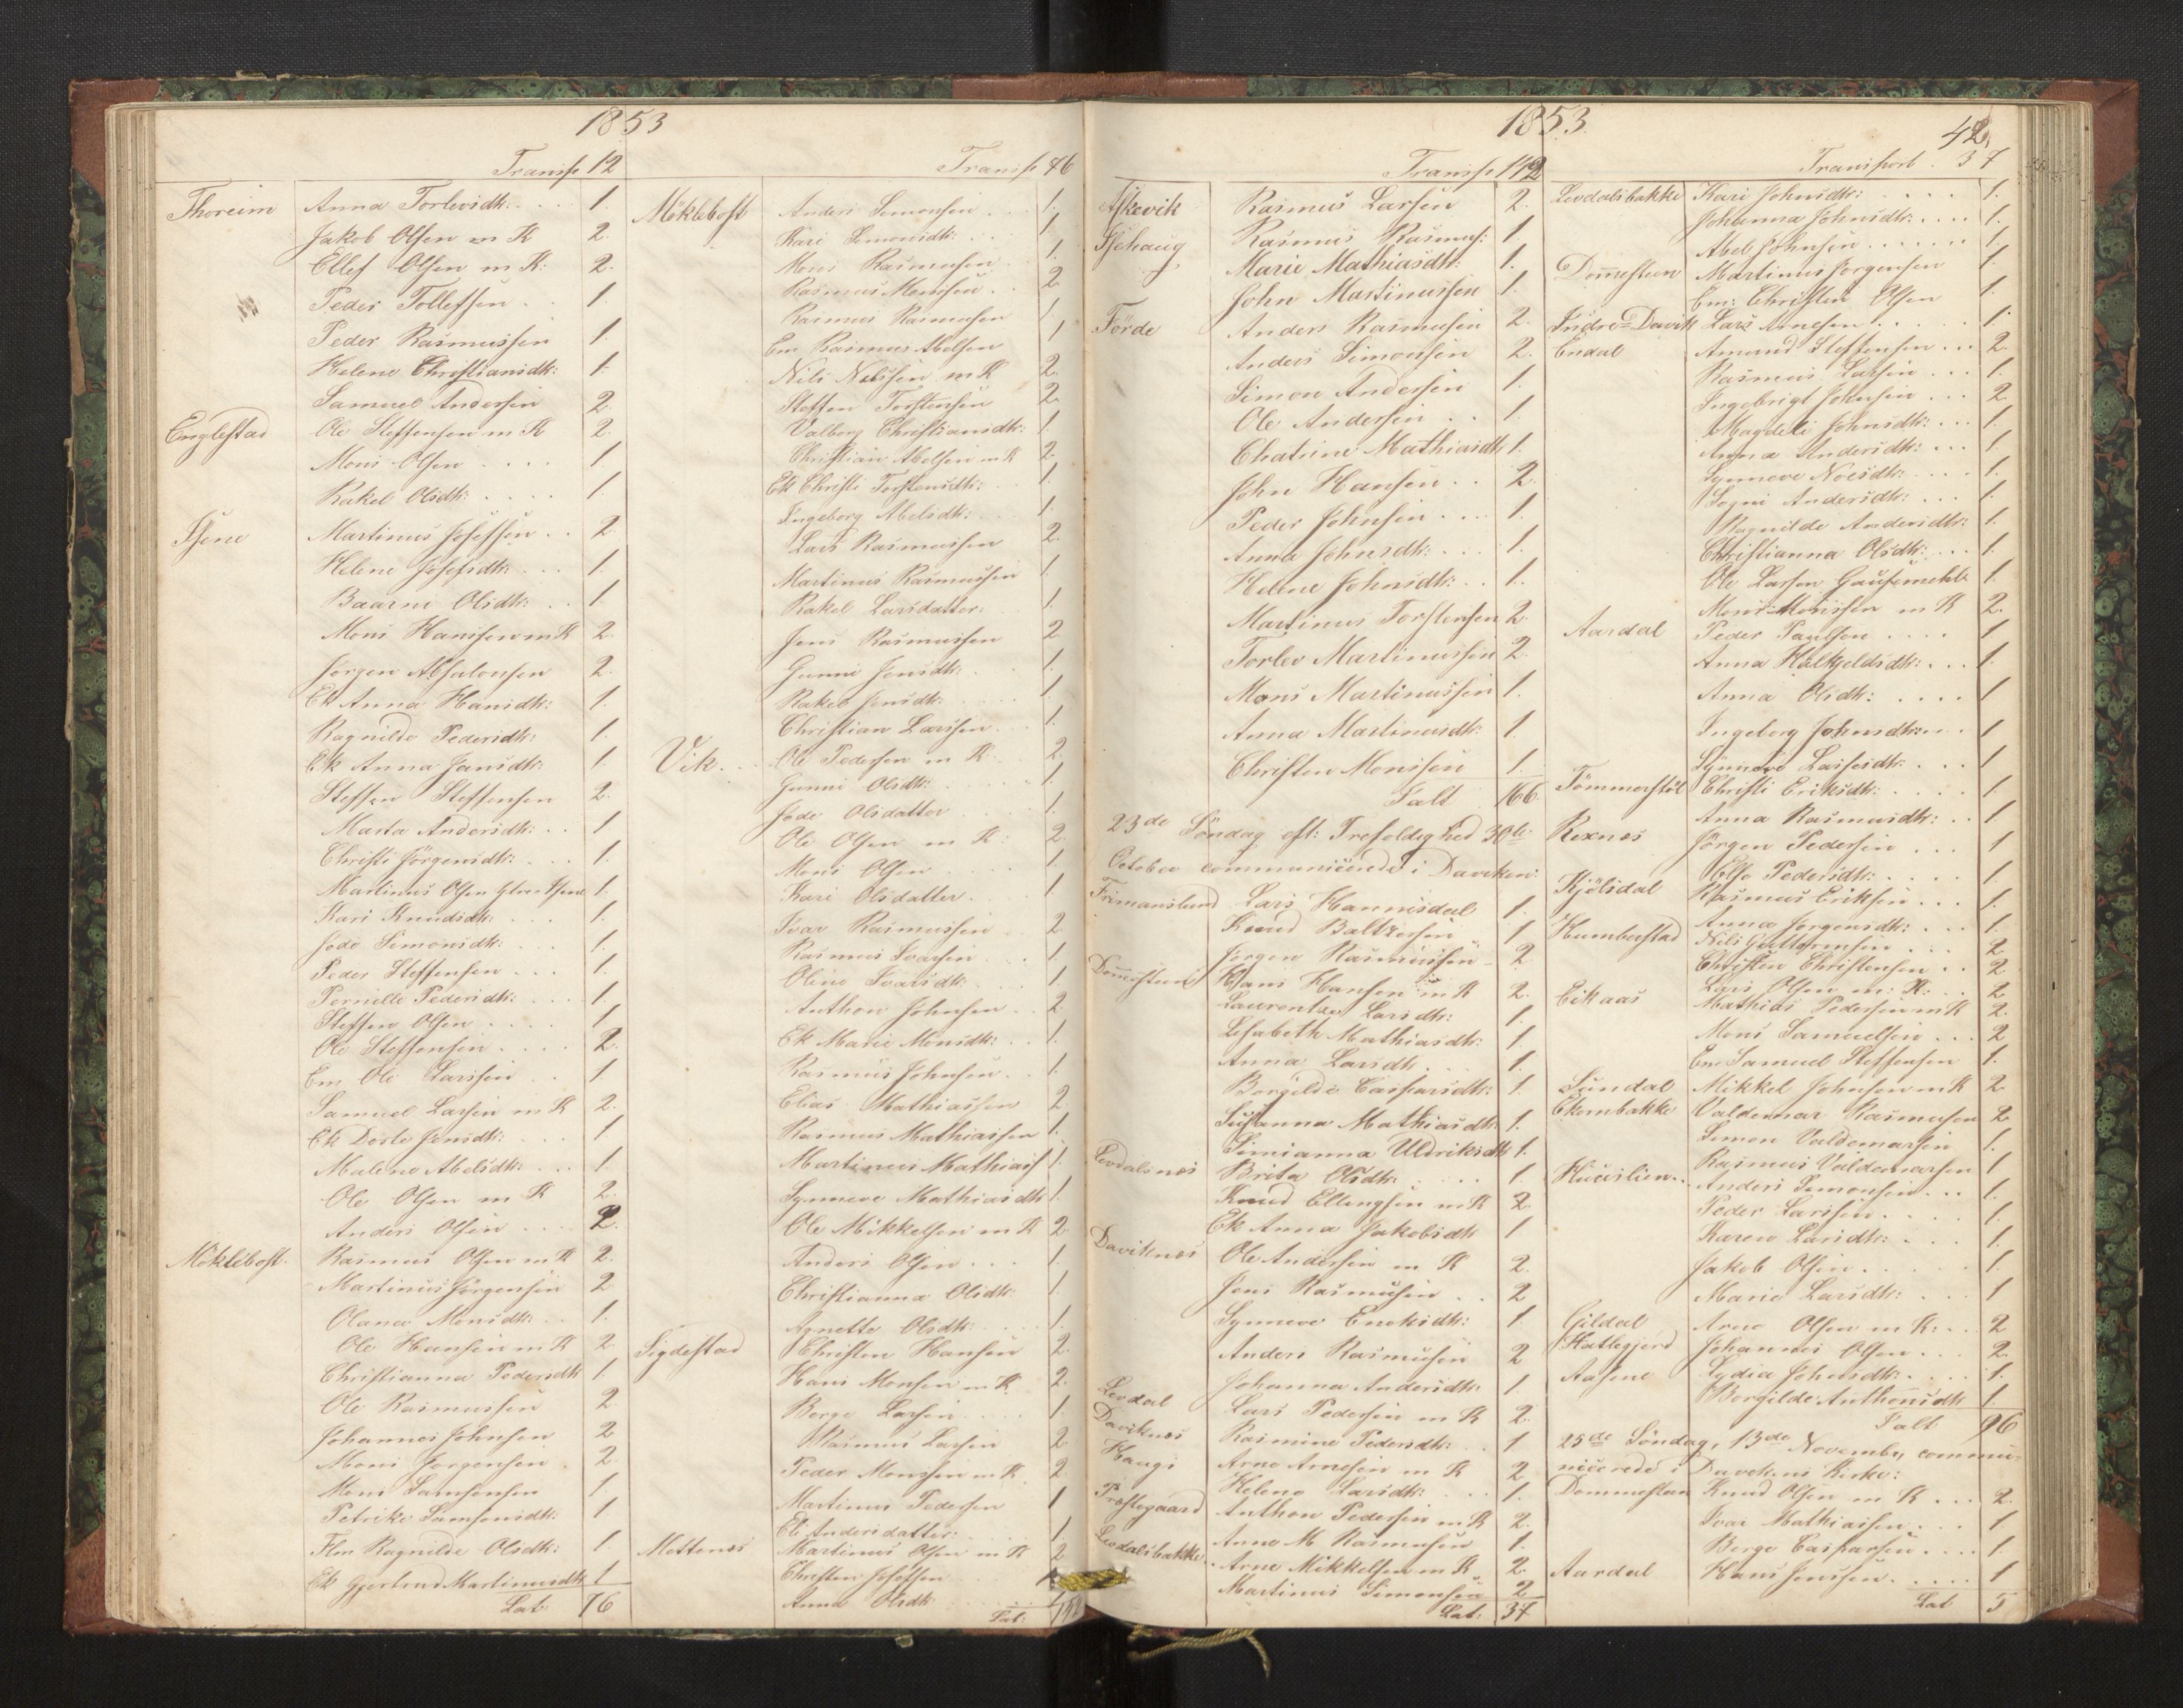 1853
Transp 12
Thoreim Anna Torlevsdtr: 1.
Jakob Olsen m K 2.
Ellef Olsen m K: 2.
Peder Tollefsen 1.
Peder Rasmussen 1.
Helene Christiansdtr: 1.
Samuel Andersen 2
Englestad Ole Steffensen m K 2.
Mons Olsen 1
Rakel Olsdtr: 1
Isene Martinus Josefsen 2
Helene Josefsdtr 1.
Baarni Olsdtr: 1
Mons Hansen m K 2.
Jörgen Absalonsen 2.
Ek Anna Hansdtr: 1.
Ragnilde Pedersdtr: 1.
Ek Anna Jensdtr: 1
Steffen Steffensen 2.
Marta Andersdtr: 1
Christi Jörgensdtr: 1.
Martinus Olsen 1.
Kari Knudsdtr: 1.
Jode Simonsdtr: 1.
Peder Steffensen 1.
Pernille Pedersdtr: 1.
Steffen Olsen 1
Ole Steffensen 2.
Em Ole Larssen 1
Samuel Larsen m K 2.
Ek Dorte Jensdtr: 1
Malene Abelsdtr: 1.
Ole Olsen m K 2.
Anders Olsen 2.
Möklebost Rasmus Olsen m K 2.
Martinus Jörgensen 2
Olana Monsdtr: 1.
Ole Hansen m K 2
Christianna Pedersdtr 1.
Ole Rasmussen 2
Johannes Johnsen 2
Mons Jörgensen 2.
Mons Samsonsen 1
Petrike Samsonsdtr: 1.
Flm Ragnilde Olsdtr: 1.
Ek Gjertrud Martinusdtr 1
Lat: 76
Transp 76
Möklebost Anders Simonsen 1.
Kari Simonsdtr: 1
Mons Rasmussen 1.
Rasmus Monsen 2
Rasmus Rasmussen 1
Em Rasmus Abelsen 1
Nils Nilssen m K 2.
Steffen Torstensen 2.
Valborg Christiansdtr: 1.
Christian Abelsen m K 2.
Ek Christi Torstensdtr: 1.
Ingeborg Abelsdtr: 1.
Lars Rasmussen 2.
Martinus Rasmussen 1
Rakel Larsdatter: 1.
Jens Rasmussen 2
Gunni Jensdtr: 1.
Rakel Jensdtr: 1
Christian Larssen 1.
Vik. Ole Pedersen m K. 2.
Gunni Olsdtr: 1.
Jode Olsdatter 1.
Ole Olsen m K: 2.
Mons Olsen 1.
Kari Olsdatter 1
Ivar Rasmussen 2
Rasmus Ivarsen 1.
Oline Ivarsdtr: 1.
Anthon Johnsen 2
Ek Marie Monsdtr: 1.
Rasmus Johnsen 1.
Elias Mathiassen 2
Rasmus Mathiassen 1.
Martinus Mathiass 1
Synneve Mathiasdtr 1.
Ole Mikkelsen m K 2
Anders Olsen 1.
Christianna Olsdtr: 1
Agnette Olsdtr: 1.
Sigdestad Christen Hansen 2.
Hans Monsen m K 2.
Berge Larsen 1.
Rasmus Larsen 2
Peder Monsen m K 2.
Martinus Pedersen 1
Eli Andersdatter: 1.
Mettenes Martinus Olsen m K 2
Christen Josefsen 1
Anna Olsdtr 1
Lat: 142
1853.
42
Transp 142
Askevik Rasmus Larsen 2.
Isehaug Rasmus Rasmus: 1
Marie Mathiasdtr: 1.
John Martinussen 1
Förde Anders Rasmusen 2.
Anders Simonsen 2.
Simon Andersen 1.
Ole Andersen 1.
Chatrine Mathiasdtr 1.
John Hansen 2.
Peder Johnsen 1.
Anna Johnsdtr: 1.
Helene Johnsdtr: 1.
Martinus Torstensen 2.
Torlev Martinussen 2.
Mons Martinussen 1.
Anna Martinusdtr 1.
Christen Monsen 1.
I alt 166.
23de Söndag eft: Trefoldighed 30te
October communicerede i Daviken:
Frimanslund Lars Hannisdal 1.
Knud Baltzersen 1
Jörgen Rasmussen 2
Domestein Hans Hansen m K 2.
Laurentze Larsdtr: 1.
Lisabeth Mathiasdtr: 1.
Anna Larsdtr. 1.
Borgilde Caspersdtr: 1.
Susanna Mathiasdtr 1.
Simianna Uldriksdtr 1.
Levdalsnes Brita Olsdtr: 1.
Knud Ellingsen m K 2.
Ek Anna Jakobsdtr 1
Daviknes Ole Andersen m K 2.
Jens Rasmusen 2
Synneve Enoksdtr: 1
Anders Rasmusen 2
Johanna Andersdtr: 1.
Levdal Lars Pedersen m K 2.
Daviknes Rasmine Pedersdtr: 1
Haugs Arne Arnesen m K 2
Helene Larsdtr: 1.
Præstegaard Anthon Pedersen m K 2.
Anne M Rasmusen 1.
Levdalsbakke Arne Mikkelsen m K 2.
Martinus Simonsen 2
Lat: 37
Transport. 37
Levdalsbakke Kari Johnsdtr: 1.
Johanna Johnsdtr: 1.
Abel Johnsen 1.
Domestein Martinus Jörgensen 1
Em: Christen Olsen 1.
Indre-Davik Lars Arnesen 1.
Endal Amund Steffensen 2.
Rasmus Larsen 1.
Ingebrigt Johnsen 2
Magdeli Johnsdtr: 1.
Anna Andersdtr: 1.
Synneve Noesdtr: 1.
Sogni Andersdtr: 1.
Ragnilde Andersdtr: 1.
Christianna Olsdtr: 1
Ole Larsen 1
Mons Monssen m K 2.
Aardal Peder Paulsen 1
Anna Halkjeldsdtr: 1.
Anna Olsdtr: 1
Ingeborg Johnsdtr: 1
Synneve Larssdtr: 1
Tömmerstöl Christi Eriksdtr: 1.
Anna Rasmusdtr: 1
Rexnes Jörgen Pedersen 1
Else Pedersdtr: 1.
Kjölsdal Rasmus Eriksen 1.
Anna Jörgensdtr: 1.
Humberstad Nils Guttormsen 2
Christen Christensen 2
Lars Olsen m: K: 2
Eikaas Mathias Pedersen m K 2.
Mons Samuelsen 2
Em Samuel Steffensen 1.
Sundal Mikkel Johnsen m K 2
Ekornbakke Valdemar Rasmusen 2
Simon Valdemarsen 1.
Rasmus Valdemarsen 1
Huuslien Anders Simonsen 1.
Peder Larssen 1.
Karen Larsdtr: 1.
Jakob Olsen 1.
Marie Larsdtr: 1
Gildal Arne Olsen m K: 2
Hatlegjerd Johannes Olsen 2.
Aasene Lydia Johnsdtr: 1.
Borgilde Anthonsdtr 1.
I alt 96
25de Söndag, 13de November, commu-
nicerede i Davikens Kirke:
Dommestein Knud Olsen m K 2.
Ivar Mathiassen 1
Berge Caspersen 1
Aardal Hans Jenssen 1
Lat 5